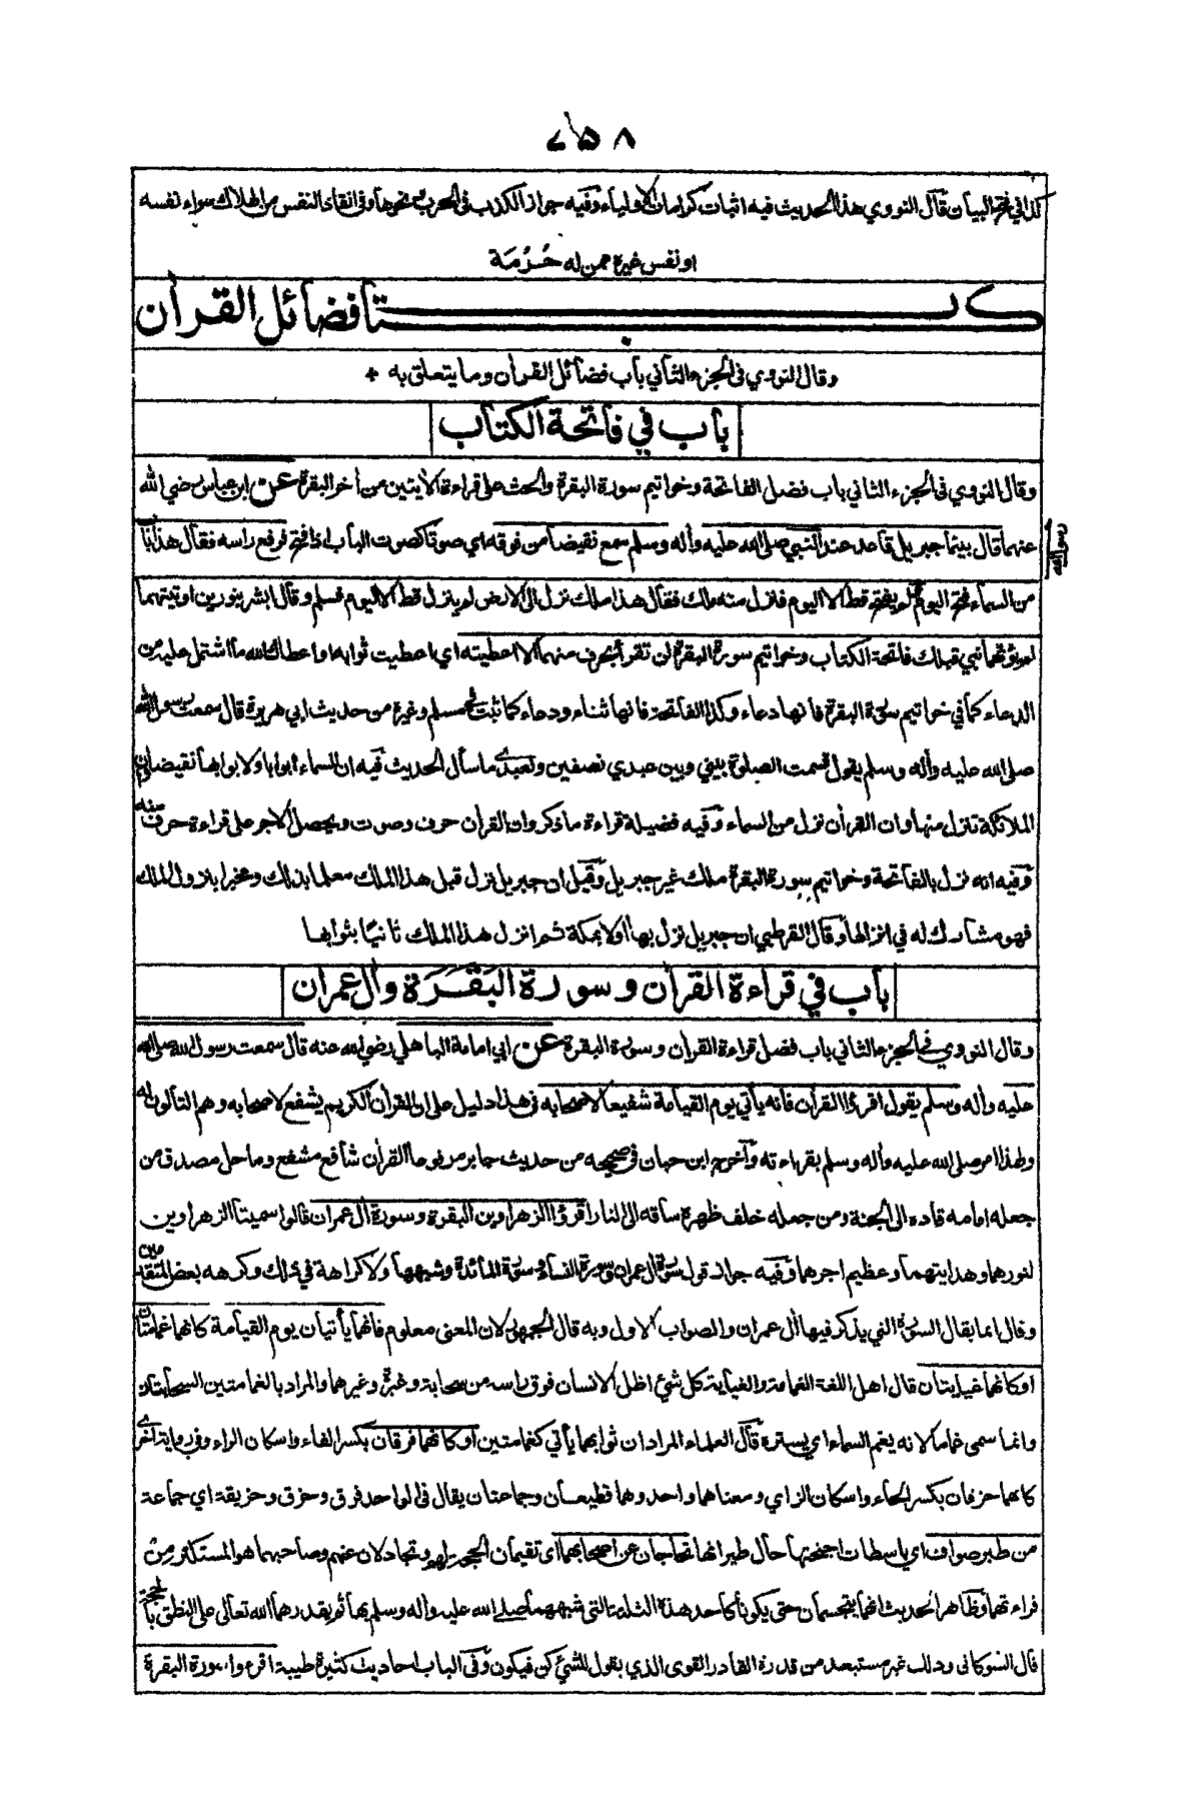 ٧٥٨
كذا في فتح البيان قال النووي هذا الحديث فيه اثبات كرامات الاولياء وفيه جواز الكذب في الحرب ونحوها وفي انقاذ النفس من الهلاك سواء نفسه
او نفس غيره ممن له حُرْمَة
كتاب فضائل القرآن
وقال النووي في الجزء الثاني باب فضائل القرآن وما يتعلق به +
باب في فاتحة الكتاب
وقال النووي في الجزء الثاني باب فضل الفاتحة وخواتيم سورة البقرة والحث على قراءة الآيتين من أخر البقرة عن ابن عباس رضي الله
عنهما قال بينما جبريل قاعد عند النبي صلى الله عليه وأله وسلم سمع نقيضا من فوقه اي صوتا كصوت الباب اذا فتح فرفع راسه فقال هذا باب
رسول الله
من السماء فتح اليوم لم يفتح قط الا اليوم فانزل منه ملك فقال هذا ملك نزل الى الارض لم ينزل قط الا اليوم فسلم وقال ابشر بنورين اوتيتهما
لم يؤتهما نبي قبلك فاتحة الكتاب وخواتيم سورة البقرة لن تقرأ بحرف منهما الا اعطيته اي اعطيت ثوابه او اعطاك الله ما اشتمل عليه من
الدعاء كما في خواتيم سورة البقرة فانها دعاء وكذا الفاتحة فانها ثناء ودعاء كما ثبت في مسلم وغيرة من حديث ابي هريرة قال سمعت رسول الله
صلى الله عليه وأله وسلم يقول قسمت الصلوة بيني وبين عبدي نصفين ولعبدي ما سأل الحديث فيه ان السماء ابوابا ولابوابها نقيضا وان
الملائكة تنزل منها وان القرآن نزل من السماء وفيه فضيلة قراءة ما ذكر وان القرآن حرف وصوت ويحصل الاجر على قراءة حرف منه
وفيه انه نزل بالفاتحة وخواتيم سورة البقرة ملك غير جبريل وقيل ان جبريل نزل قبل هذا الملك معلما بذلك ومخبرا بنزول الملك
فهو مشارك له في انزالها وقال القرطبي ان جبريل نزل بها اولا بمكة ثم انزل هذا الملك ثانيًا بثوابها
باب في قراءة القرآن وسورة البَقَرَة وأل عمران
وقال النووي في الجزء الثاني باب فضل قراءة القرآن وسورة البقرة عن ابي امامة الباهلي رضي الله عنه قال سمعت رسول الله صلى الله
عليه وأله وسلم يقول اقرؤا القرأن فانه يأتي يوم القيامة شفيعا لاصحابه في هذا دليل على ان القرأن الكريم يشفع لاصحابه وهم التالون له
ولهذا امر صلى الله عليه وأله وسلم بقراءته وأخرج ابن حبان في صحيحه من حديث جابر مرفوعا القرأن شافع مشفع وماحل مصدق من
جعله امامه قاده الى الجنة ومن جعله خلف ظهره ساقه الى النار اقرؤا الزهراوين البقرة وسورة أل عمران قالوا سميتا الزهراوين
لنورهما وهدايتهما وعظيم اجرهما وفيه جواز قول سورة أل عمران وسورة النساء وسورة المائدة وشبهها ولا كراهة في ذلك وكرهه بعض المتقدمين
وقال انما يقال السورة التي يذكر فيها أل عمران والصواب الاول وبه قال الجمهور لان المعنى معلوم فانهما يأتيان يوم القيامة كانهما غمامتان
او كانهما غيايتان قال اهل اللغة الغمامة والغياية كل شئ اظل الانسان فوق راسه من سحابة وغبرة وغيرهما والمراد بالغمامتين السحابتان
وانما سمى غماما لانه يغم السماء اي يسترة قال العلماء المراد ان ثوابهما يأتي كغمامتين او كانهما فرقان بكسر الفاء واسكان الراء وفي رواية اخرى
كانهما حزقان بكسر الحاء واسكان الزاي ومعناهما واحد وهما قطيعان وجماعتان يقال في الواحد فرق وحزق وحزيقة اي جماعة
من طير صواف اي باسطات اجنحتها حال طيرانها تحاجان عن اصحابهما اى تقيمان الحجة لهم وتجادلان عنهم وصاحبهما هو المستكثر مِن
قراءتهما وظاهر الحديث انهما يتجسمان حتى يكونا كاحد هذه الثلثة التي شبههما صلى الله عليه وأله وسلم بها ثم يقدرهما الله تعالى على النطق بالحجة
قال الشوكانى وذلك غير مستبعد من قدرة القادر القوى الذي يقول للشئ كن فيكون وفى الباب احاديث كثيرة طيبة اقرءوا سورة البقرة